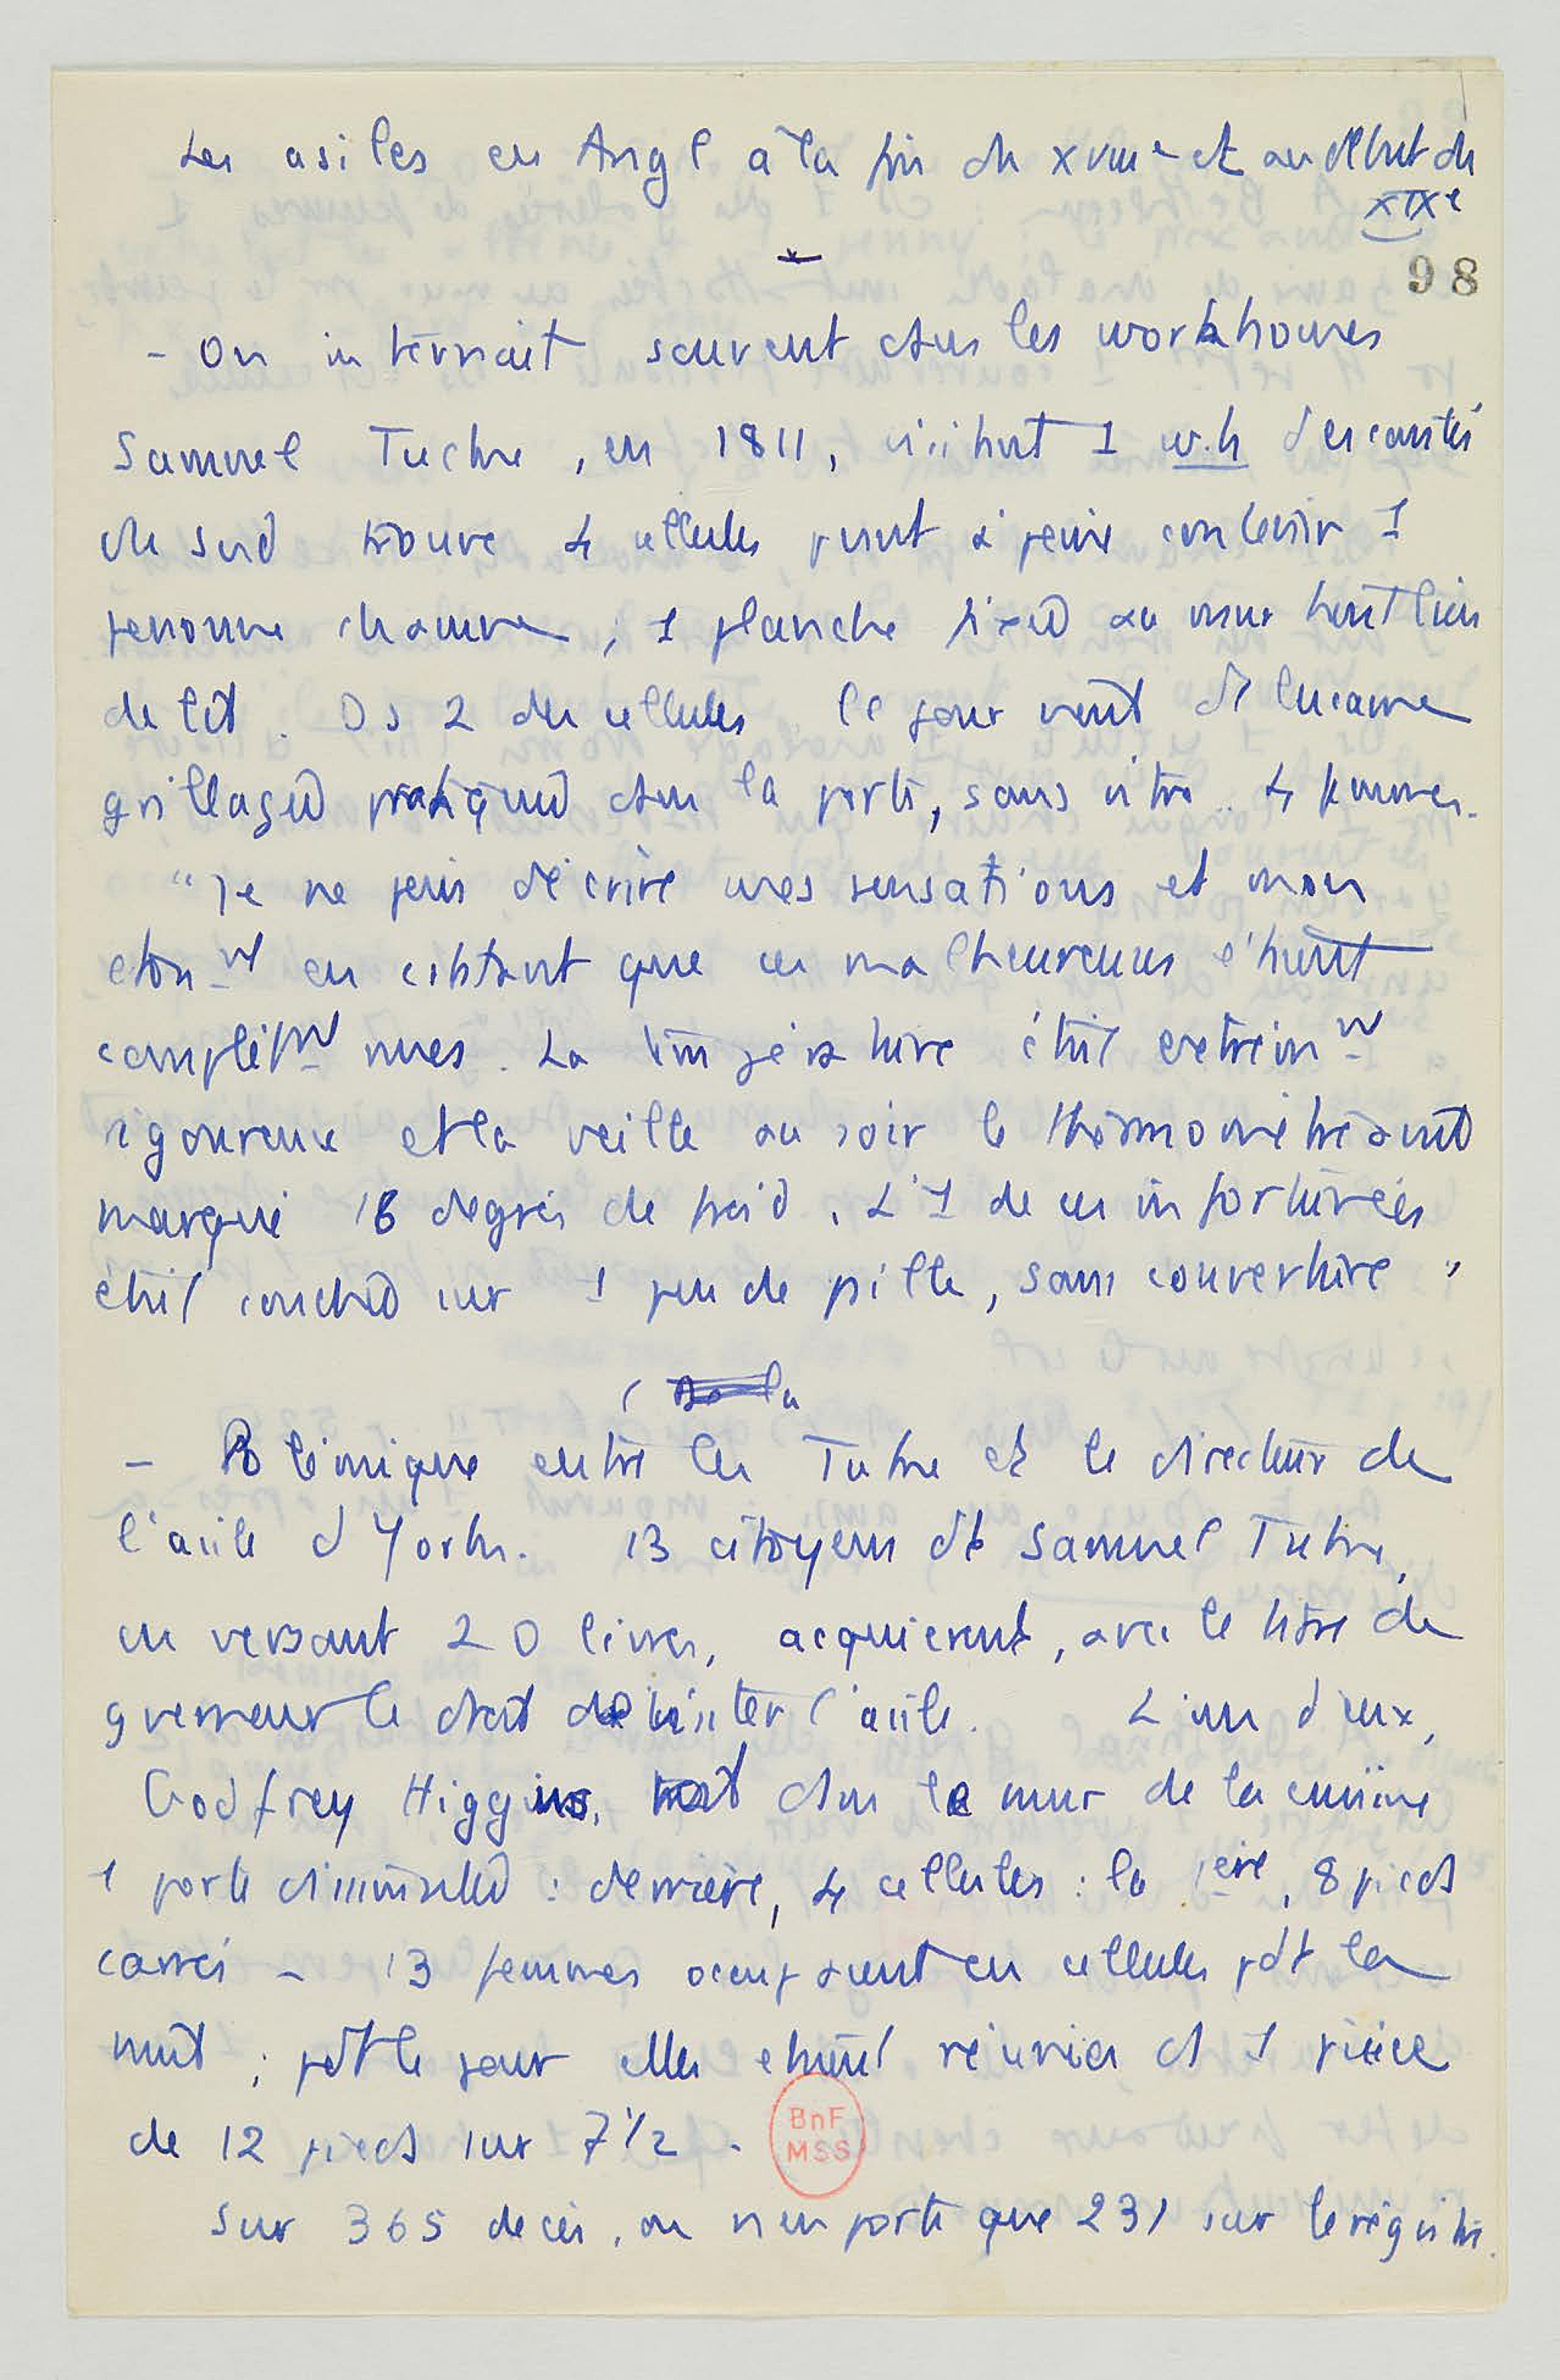 Les asiles en Angl à la fin du XVIIIe et au début du
XIXe
98
- On internait souvent dans les workhouses
Samuel Tucke, en 1811, visitant 1 w.h des comtés
du sud trouve 4 cellules pvant à peine contenir 1
personne chacune, 1 planche fixée au mur tient lieu
de lit. Ds 2 des cellules le jour vient d'1 lucarne
grillagée pratiquée dans la porte, sans vitre. 4 femmes.
"Je ne puis décrire mes sensations et mon
étonnt en cstatant que ces malheureuses étaient
complètmt nues. La température était extrêmt
rigoureuse et la veille au soir le thermomètre avait
marqué 16 degrés de froid. L'1 de ces infortunées
était couchée sur 1 peu de paille, sans couverture"
- Polémique entre les Tuke et le directeur de
l'asile d'York. 13 citoyens dt Samuel Tuke,
en versant 20 livres, acquièrent, avec le titre de
gverneur le droit de visiter l'asile. L'un d'eux,
Godfrey Higgins, voit dans le mur de la cuisine
1 porte dissimulée : derrière, 4 cellules : la 1ère, 8 pieds
carrés - 13 femmes occupaient ces cellules pdt la
nuit ; pdt le jour elles étaient réunies ds 1 pièce
de 12 pieds sur 7 1/2.
BnF
MSS
Sur 365 décès, on n'en porte que 231 sur le registre.